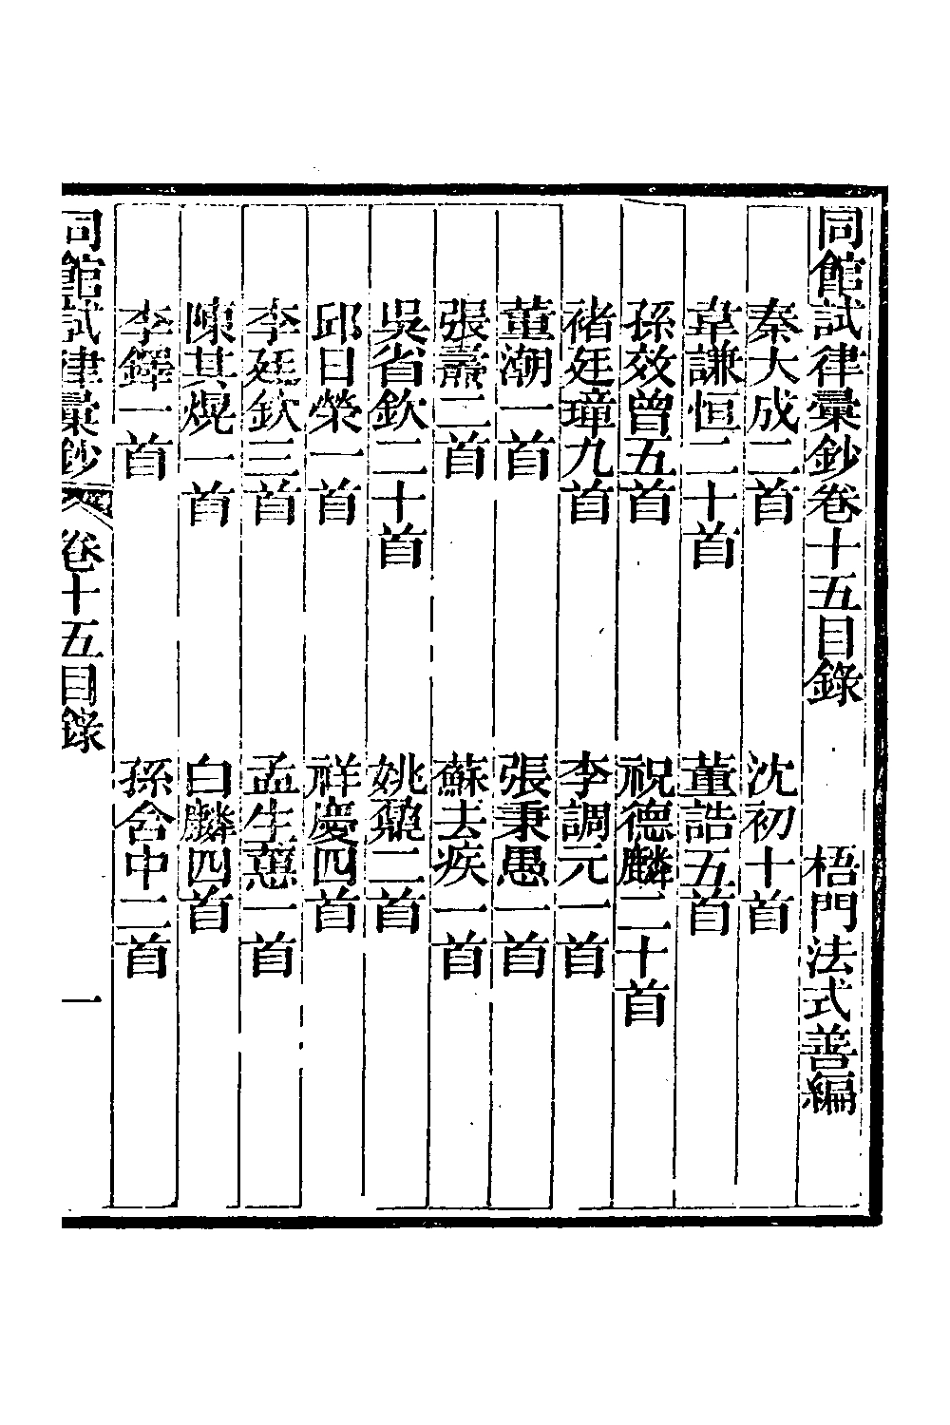 同館試律彙鈔卷十五目錄 梧門法式善編
秦大成二首 沈初十首
韋謙恒二十首 董誥五首
孫效曾五首 祝德麟二十首
褚廷璋九首 李調元一首
董潮一首 張秉愚一首
張燾二首 蘇去疾一首
吳省欽二十首 姚鼐二首
邱日榮一首 祥慶四首
李廷欽三首 孟生蕙一首
陳其焜一首 白麟四首
李鐸一首 孫含中二首
同館試律彙鈔 卷十五目錄 一